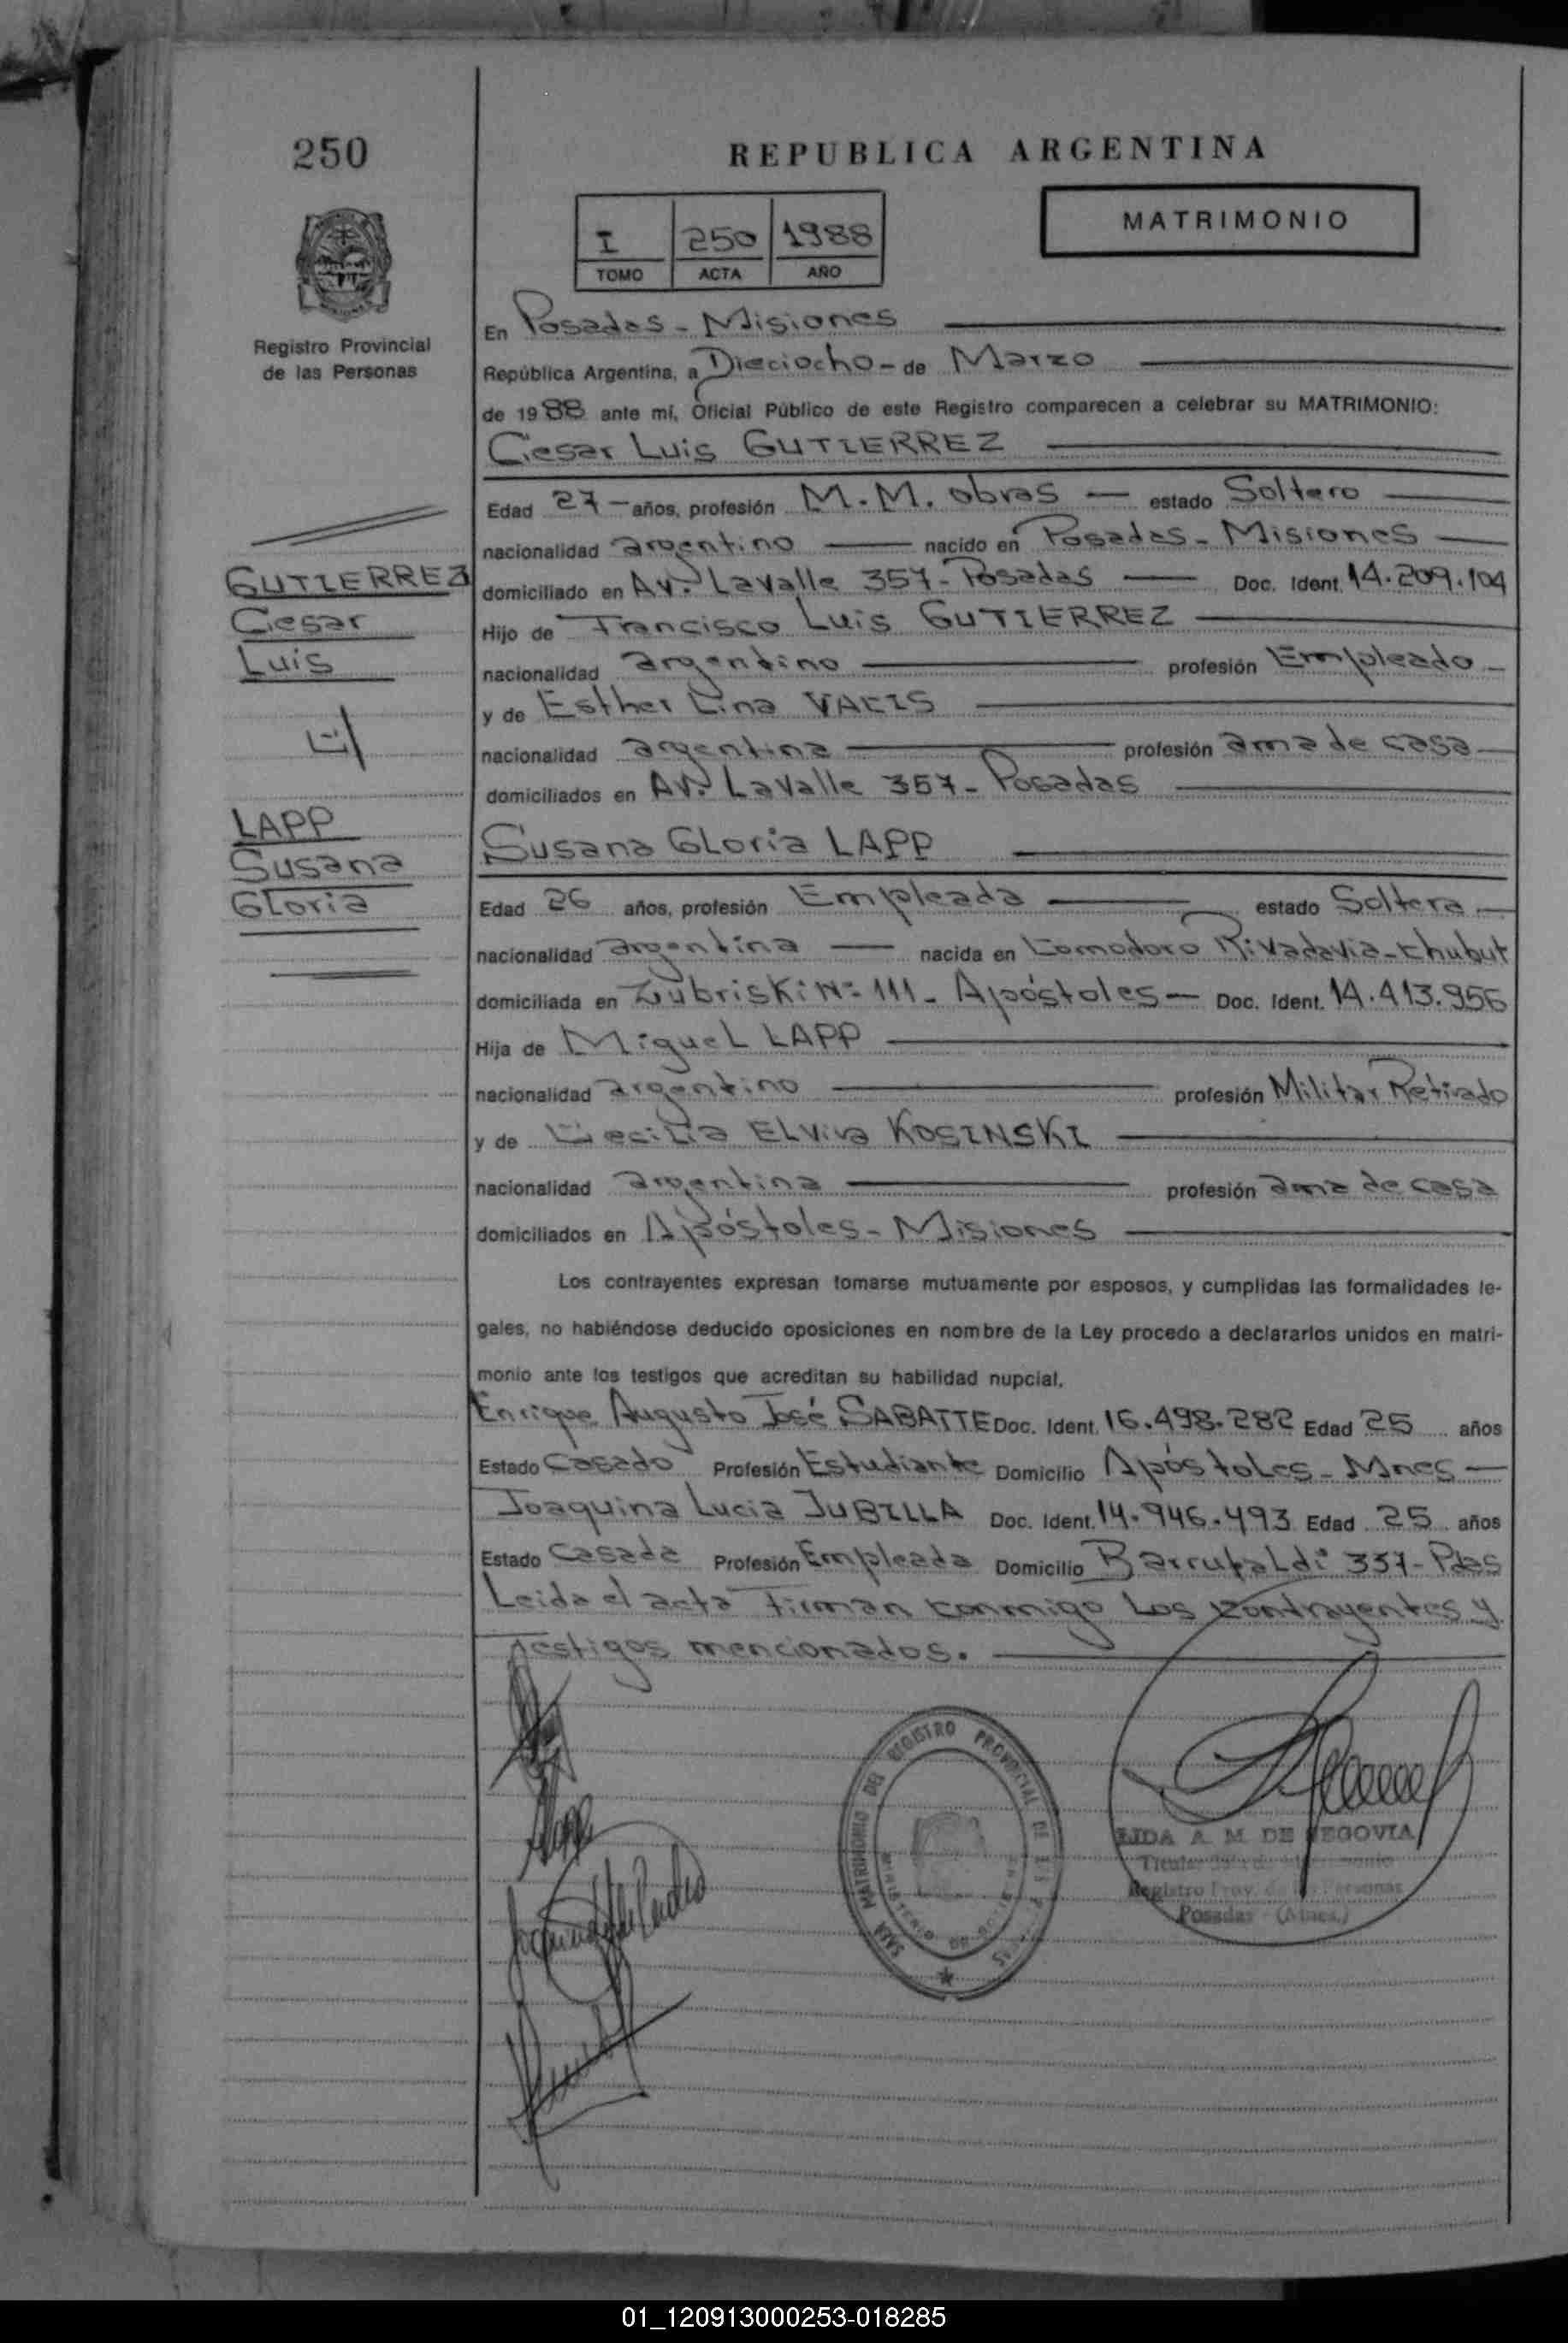 250
REPUBLICA ARGENTINA
I 250 1988
TOMO ACTA AÑO
MATRIMONIO
Registro Provincial
de las Personas
En Posadas - Misiones
República Argentina, a Dieciocho - de Marzo
de 1988 ante mí, Oficial Público de este Registro comparecen a celebrar su MATRIMONIO:
Cesar Luis GUTIERREZ
Edad 27 - años, profesión M.M. obras - estado Soltero
nacionalidad argentino nacido en Posadas - Misiones
domiciliado en Av. Lavalle 357 - Posadas Doc. Ident. 14.209.104
Hijo de Francisco Luis GUTIERREZ
nacionalidad argentino profesión Empleado
y de Esther Lina
nacionalidad argentina profesión ama de casa
domiciliados en Av. Lavalle 357 - Posadas
GUTIERREZ
Cesar
Luis
LAPP
Susana
Gloria
Susana Gloria LAPP
Edad 26 años, profesión Empleada estado Soltera
nacionalidad argentina nacida en Comodoro Rivadavia - Chubut
domiciliada en Zubriski Nº 111 - Apóstoles - Doc. Ident. 14.413.956
Hija de Miguel LAPP
nacionalidad argentino profesión Militar Retirado
y de Cecilia Elvira KOSINSKI
nacionalidad argentina profesión ama de casa
domiciliados en Apóstoles - Misiones
Los contrayentes expresan tomarse mutuamente por esposos, y cumplidas las formalidades le-
gales, no habiéndose deducido oposiciones en nombre de la Ley procedo a declararlos unidos en matri-
monio ante los testigos que acreditan su habilidad nupcial.
Enrique Augusto José SABATTE Doc. Ident. 16.498.282 Edad 25 años
Estado Casado Profesión Estudiante Domicilio Apóstoles - Mnes
Joaquina Lucia JUBILLA Doc. Ident. 14.946.493 Edad 25 años
Estado Casada Profesión Empleada Domicilio Barrufaldi 337 - Pdas
Leida el acta firman conmigo los contrayentes y
testigos mencionados.
SALA MATRIMONIO DEL REGISTRO PROVINCIAL DE LAS
MINISTERIO DE
LIDA A. M. DE SEGOVIA
Titular
Registro Prov. de las Personas
Posadas - (Mnes.)
01_120913000253-018285